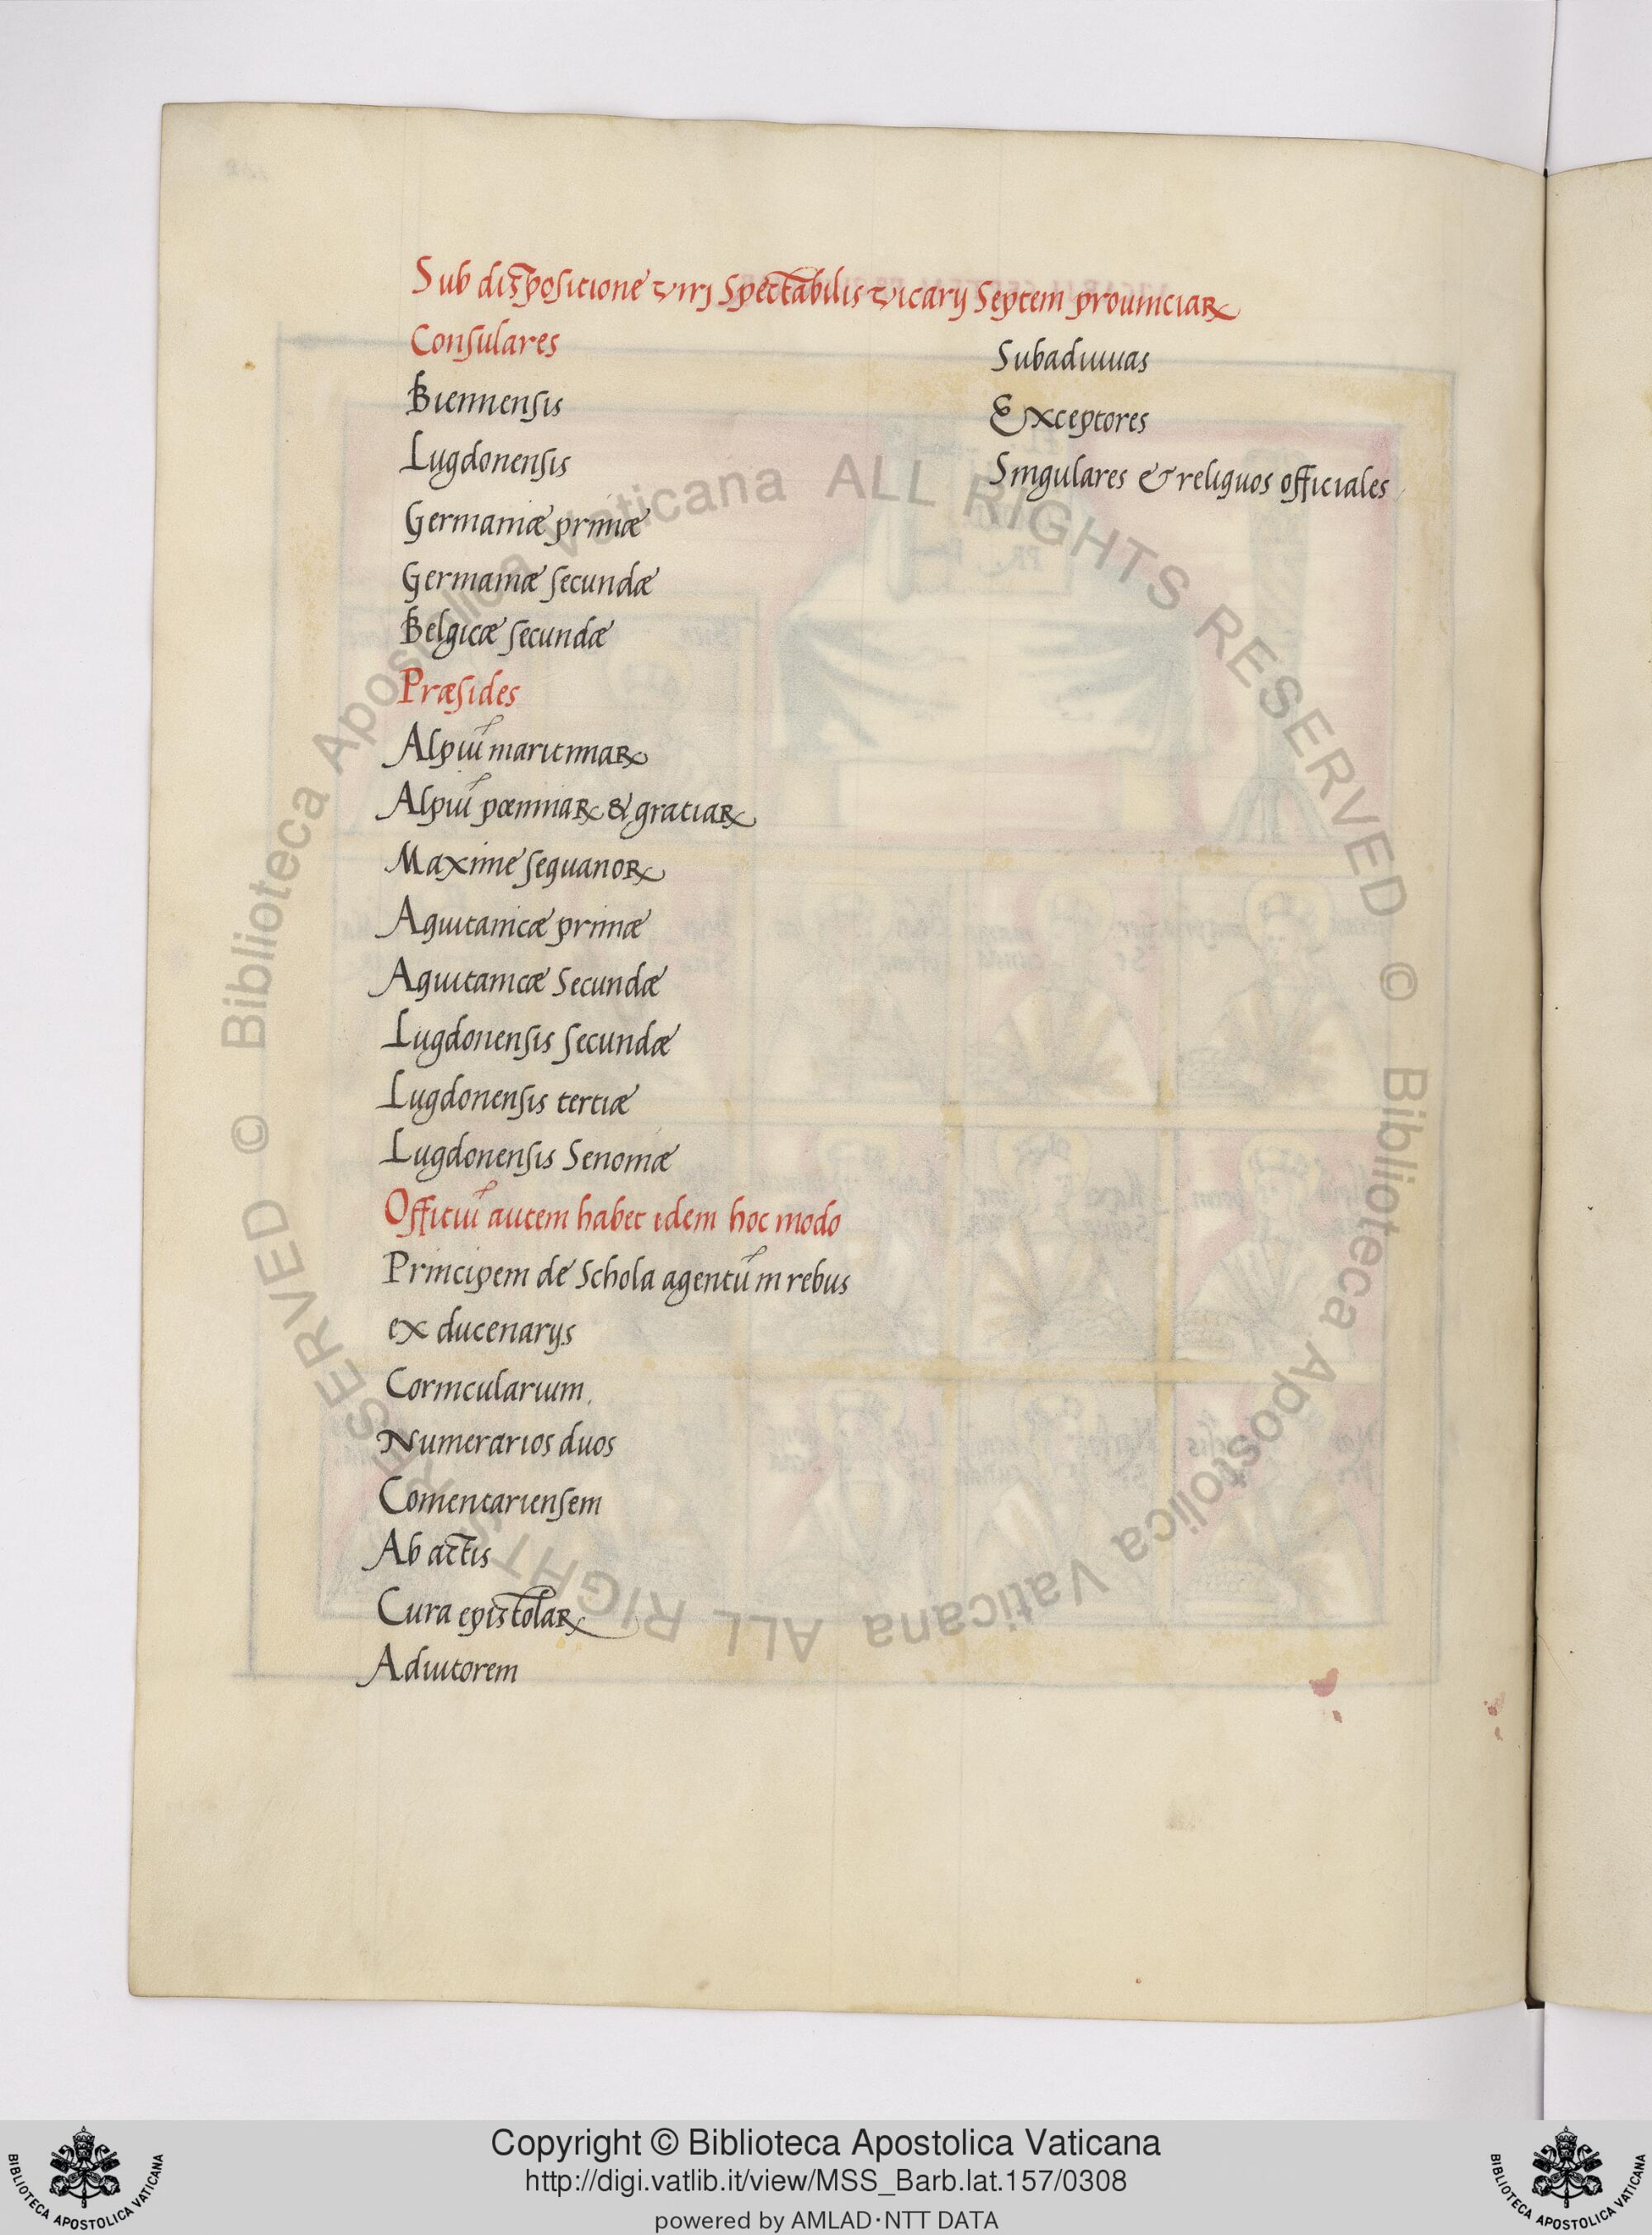 Sub dispositione viri Spectabilis vicarij Septem prouinciaꝝ
Consulares
Biennensis
Lugdonensis
Germaniæ primæ
Germaniæ secundæ
Belgicæ secundæ
Præsides
Alpiũ maritimaꝝ
Alpiũ pœninaꝝ & gratiaꝝ
Maxime sequanoꝝ
Aquitanicæ primæ
Aquitanicæ Secundæ
Lugdonensis secundæ
Lugdonensis tertiæ
Lugdonensis Senoniæ
Officiũ autem habet idem hoc modo
Principem de Schola agentũ in rebus
ex ducenarijs
Cornicularium.
Numerarios duos
Comentariensem
Ab actis
Cura epistolaꝝ
Adiutorem
Subadiuuas
Exceptores
Singulares & reliquos officiales
© Biblioteca Apostolica Vaticana ALL RIGHTS RESERVED
© Biblioteca Apostolica Vaticana ALL RIGHTS RESERVED
Copyright © Biblioteca Apostolica Vaticana
http://digi.vatlib.it/view/MSS_Barb.lat.157/0308
powered by AMLAD·NTT DATA
BIBLIOTECA APOSTOLICA VATICANA
BIBLIOTECA APOSTOLICA VATICANA